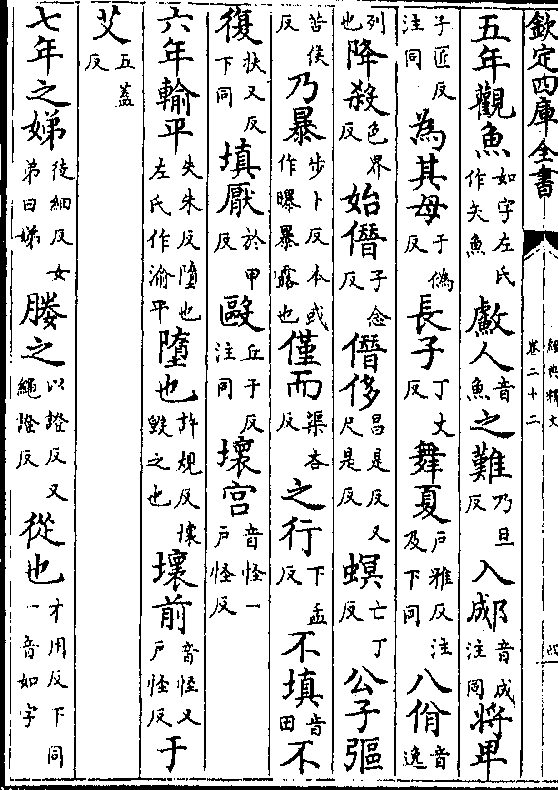 欽定四庫全書
經典釋文
卷二十二
四
五年觀魚如字左氏作矢魚𣤶人音魚之難乃旦反入郕音成注同將卑
子匠反注同為其母于偽反長子丁丈反舞夏戶雅反注及下同八佾音逸
列也降殺色界反始僭子念反僭侈昌是反又尺是反螟亡丁反公子彄
苦侯反乃暴步卜反本或作曝暴露也僅而渠吝反之行下孟反不填音田不
復扶又反下同填厭於甲反毆丘于反注同壞宮音怪一戶怪反
六年輸平失朱反墮也左氏作渝平墮也許規反壞毀之也壞前音怪又戶怪反于
艾五蓋反
七年之娣徒細反女弟曰娣媵之以證反又繩證反從也才用反下同一音如字